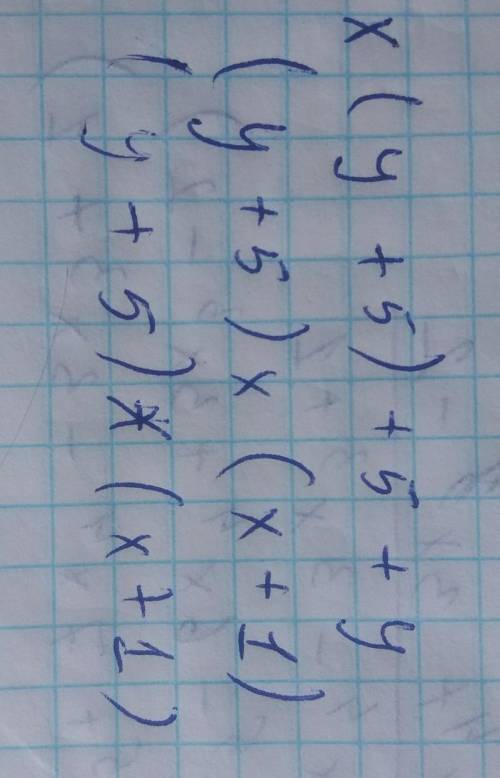 x(y+5)+5+y
(y+5)x(x+1)
(y+5)*(x+1)